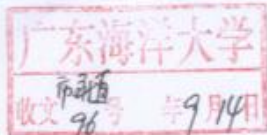 广东海洋大学
收文 96 号 年9月14日